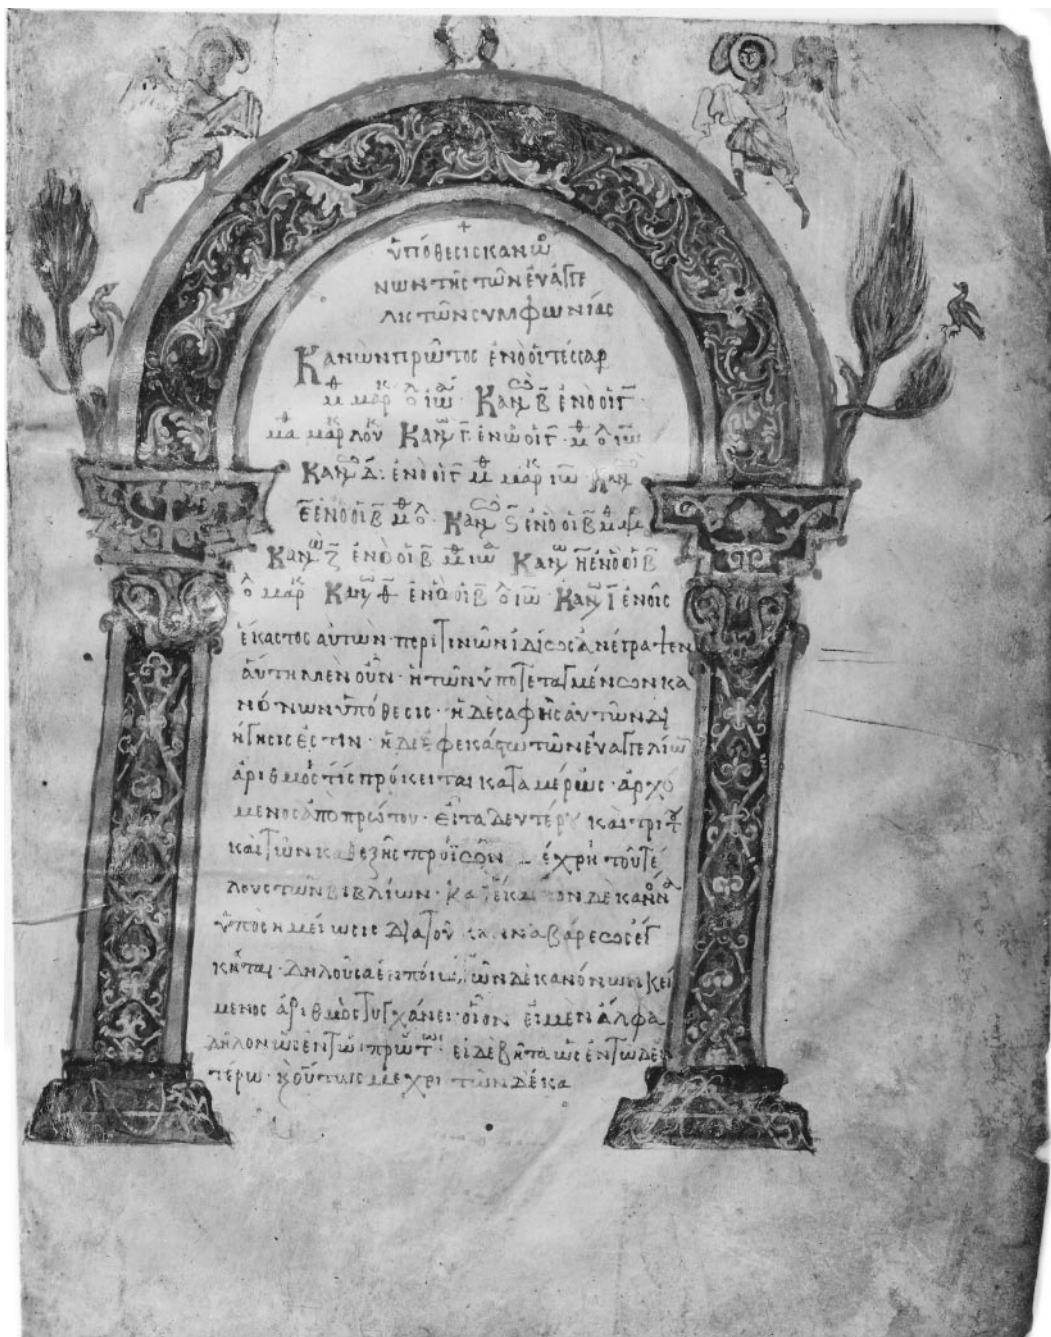 +
ὑπόθεσις κανώ
νων τῆς τῶν ἐυαγγε
λιστῶν συμφωνίας
Κανὼν πρῶτος ἐν ὧ οἱ τέσσαρ
μθ μαρκ λ ιω · Καν β ἐν ὧ οἱ γ ·
μθ μαρκ λουκ Καν γ ἐν ὧ οἱ γ · μθ λ ιω
Καν δ : ἐν ὧ οἱ γ μθ μαρκ ιω Καν
ε ἐν ὧ οἱ β μθ λ · Καν ς ἐν ὧ οἱ β μθ μρ
Καν ζ ἐν ὧ οἱ β μθ ιω Καν η ἐν ὧ οἱ β
λ μαρκ Καν θ ἐν ὧ οἱ β λ ιω · Καν ι ἐν οἷς
ἕκαστος αὐτῶν περὶ τινῶν ἰδίως ἀνέγραψεν
ἁύτη μὲν οὖν · ἡ τῶν ὑποτεταγμένων κα
νόνων ὑπόθεσις · ἡ δὲ σαφὴς ἀυτῶν δι
ήγησις ἐστιν · ἡ δε ἐφ εκάστω τῶν ἐυαγγελίων
ἀριθμός τίς πρόκειται κατα μέρος · ἀρχό
μενος ἀπο πρώτου · εἶτα δευτέρου και τρίτου
και τῶν καθεξῆς προϊὼν μέχρι τοῦ τέ
λους τῶν βιβλίων · καθ ἕκαστον δὲ
ὑποσημείωσις δια κινναβάρεως ἔγ
κειται · δηλοῦσα ἐν ποίω τῶν δέκα κανόνων κεί
μενος ἀριθμὸς τυγχάνει · οἷον εἰ μὲν ἄλφα
δῆλον ὡς ἐν τῶ πρώτω · εἰ δε βῆτα ὡς ἐν τῶ δευ
τέρω · κ οὕτως μεχρι τῶν δέκα